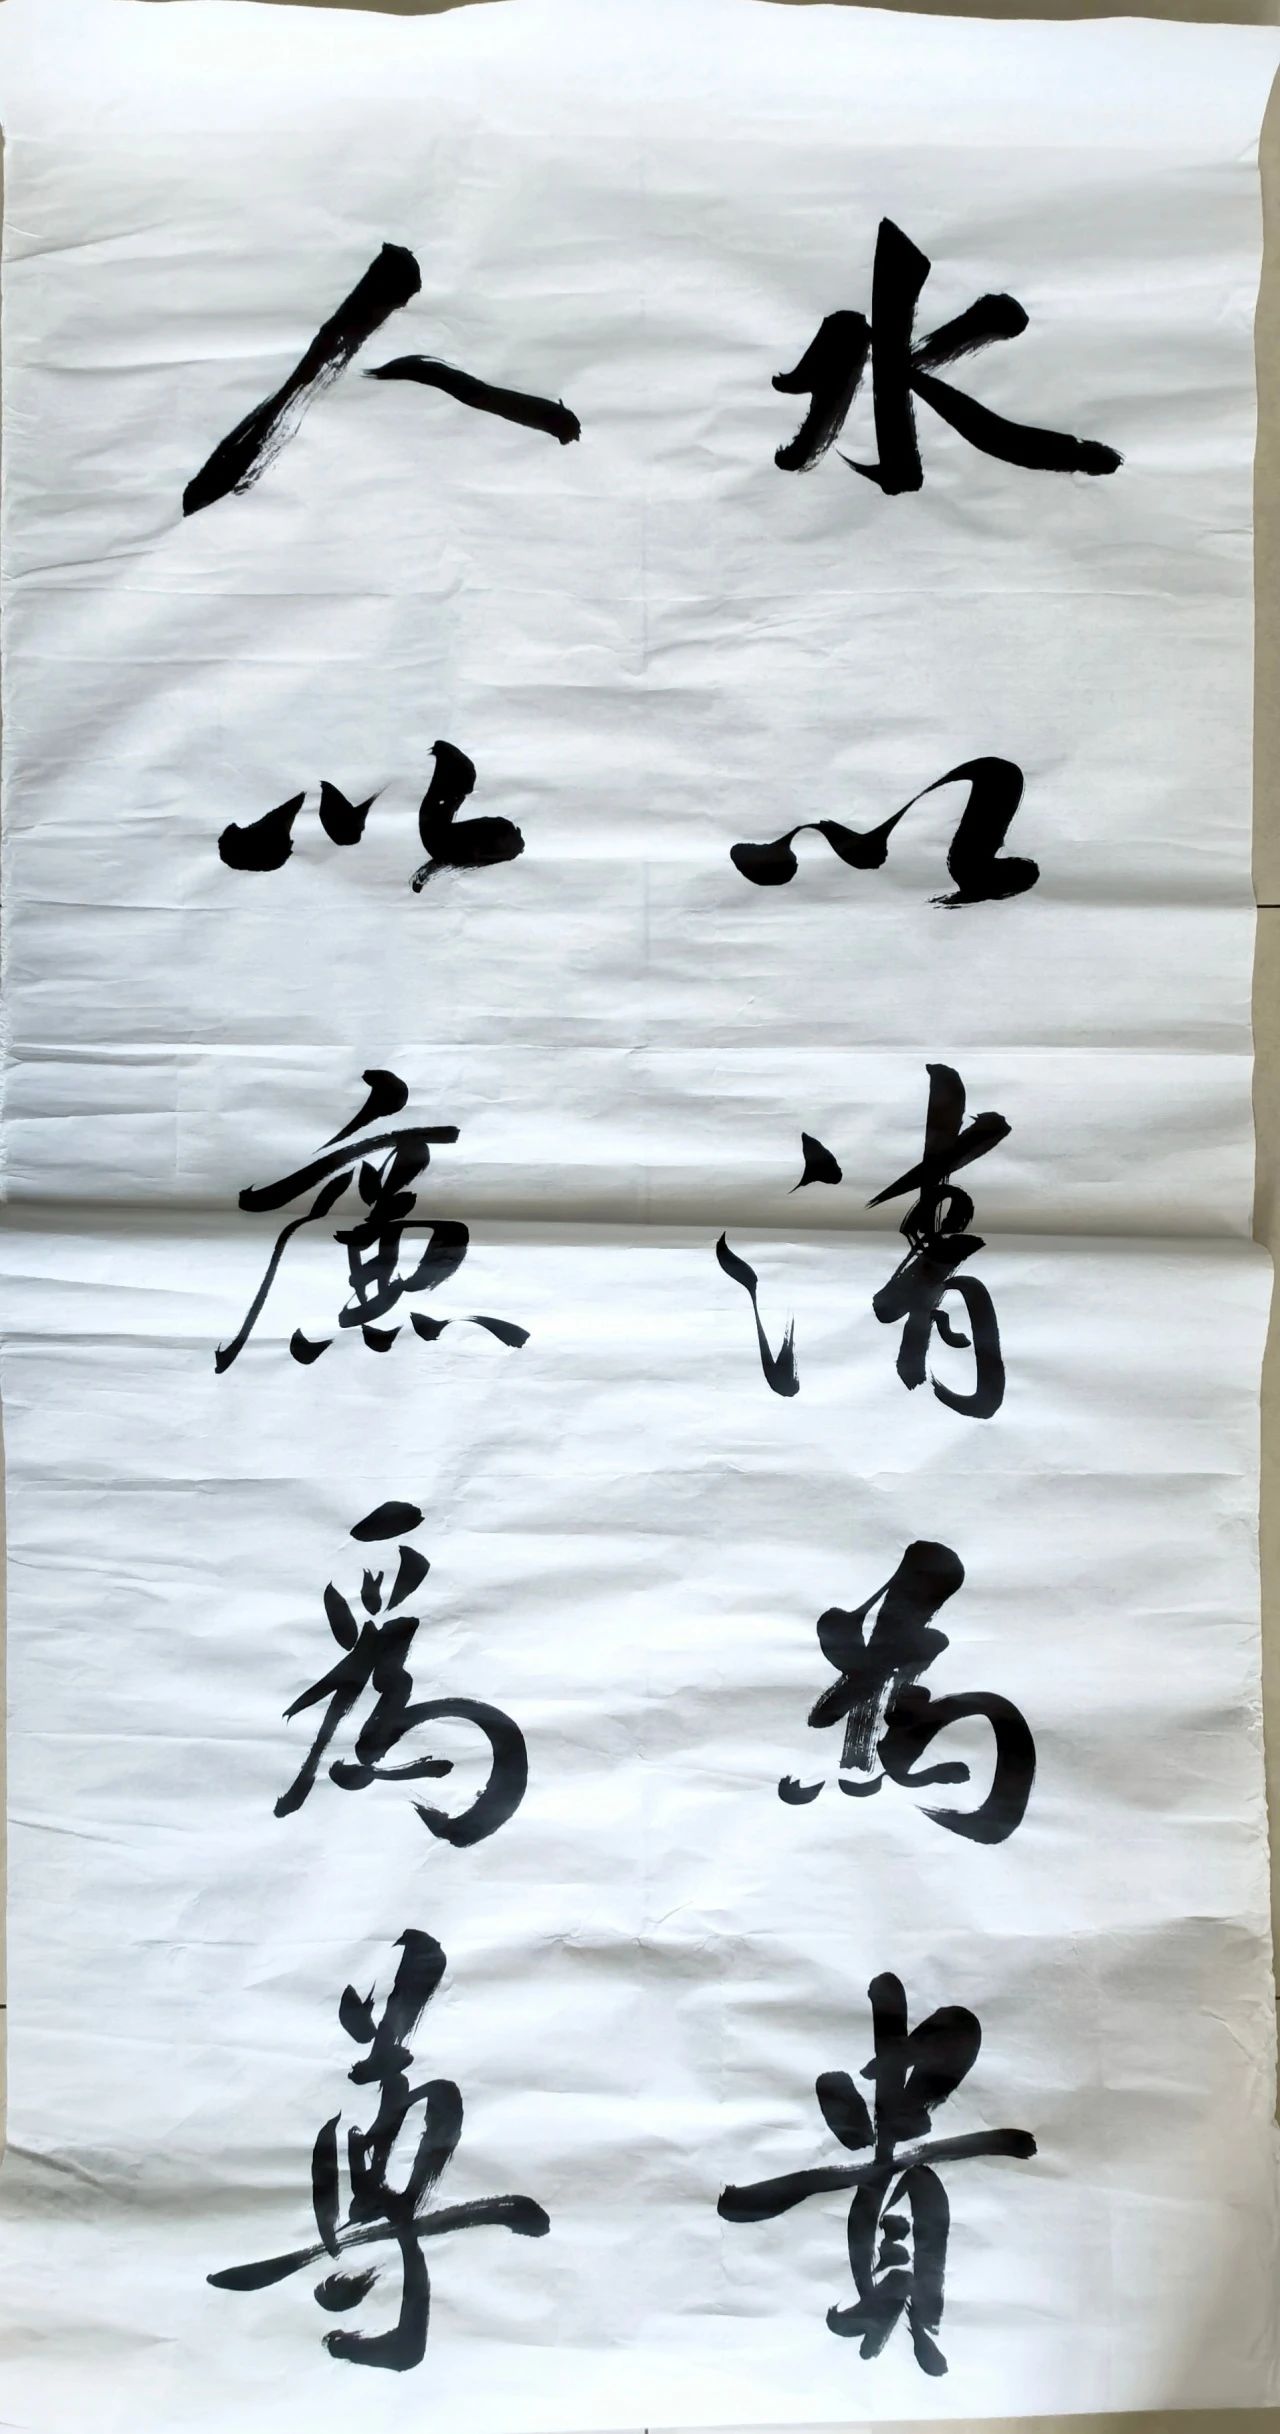 水以清為貴
人以廉爲尊